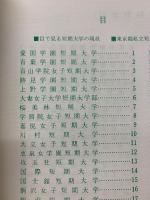 目
■目で見る短期大学の現状
■東京都私立短
愛国学園短期大学 1
青葉学園短期大学 2
青山学院女子短期大学 3
跡見学園短期大学 4
上野学園短期大学 5
大妻女子大学短期大学部 6
桜美林短期大学 7
学習院女子短期大学 8
嘉悦女子短期大学 9
川村短期大学 10
共立女子短期大学 11
恵泉女学園短期大学 12
攻玉社短期大学 13
国際短期大学 14
国士舘短期大学 15
駒沢女子短期大学 16